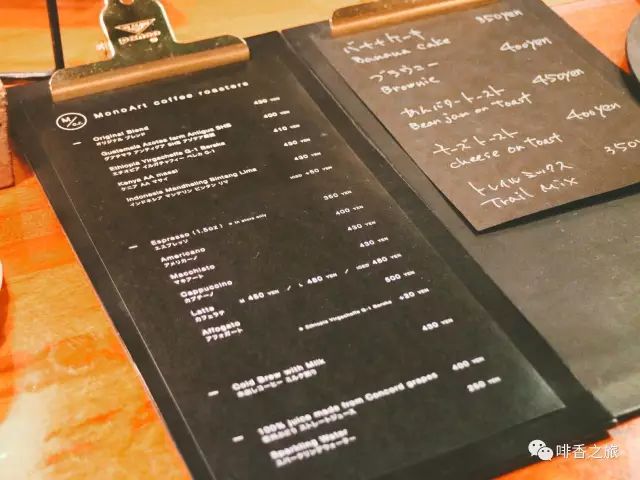 MonoArt coffee roasters
Original Blend 430 YEN
オリジナル ブレンド
Guatemala Azores farm Antigua SHB 400 YEN
グアテマラ アンティグア SHB アゾテア農園
Ethiopia Yirgacheffe G-1 Bereka 410 YEN
エチオピア イルガチャフィー ベレカ G-1
Kenya AA masai 430 YEN
ケニア AA マサイ
Indonesia Mandheling Bintang Lima 430 YEN
インドネシア マンデリン ビンタン リマ
ICED +50 YEN
Espresso (1.5oz) 350 YEN
エスプレッソ
Americano 400 YEN
アメリカーノ
Macchiato 430 YEN
マキアート
Cappuccino 430 YEN
カプチーノ
Latte M 450 YEN / L 480 YEN / ICED 480 YEN
カフェラテ
Affogato 500 YEN
アフォガート
※ Ethiopia Yirgacheffe G-1 Bereka +20 YEN
Cold Brew with Milk 430 YEN
水出しコーヒー ミルク割り
100% juice made from Concord grapes 400 YEN
ストレートジュース
Sparkling Water 250 YEN
スパークリングウォーター
バナナケーキ 350yen
Banana Cake
ブラウニー 400yen
Brownie
あんバタートースト 450yen
Bean jam on Toast
チーズトースト 400yen
cheese on Toast
トレイルミックス
Trail Mix
啡香之旅